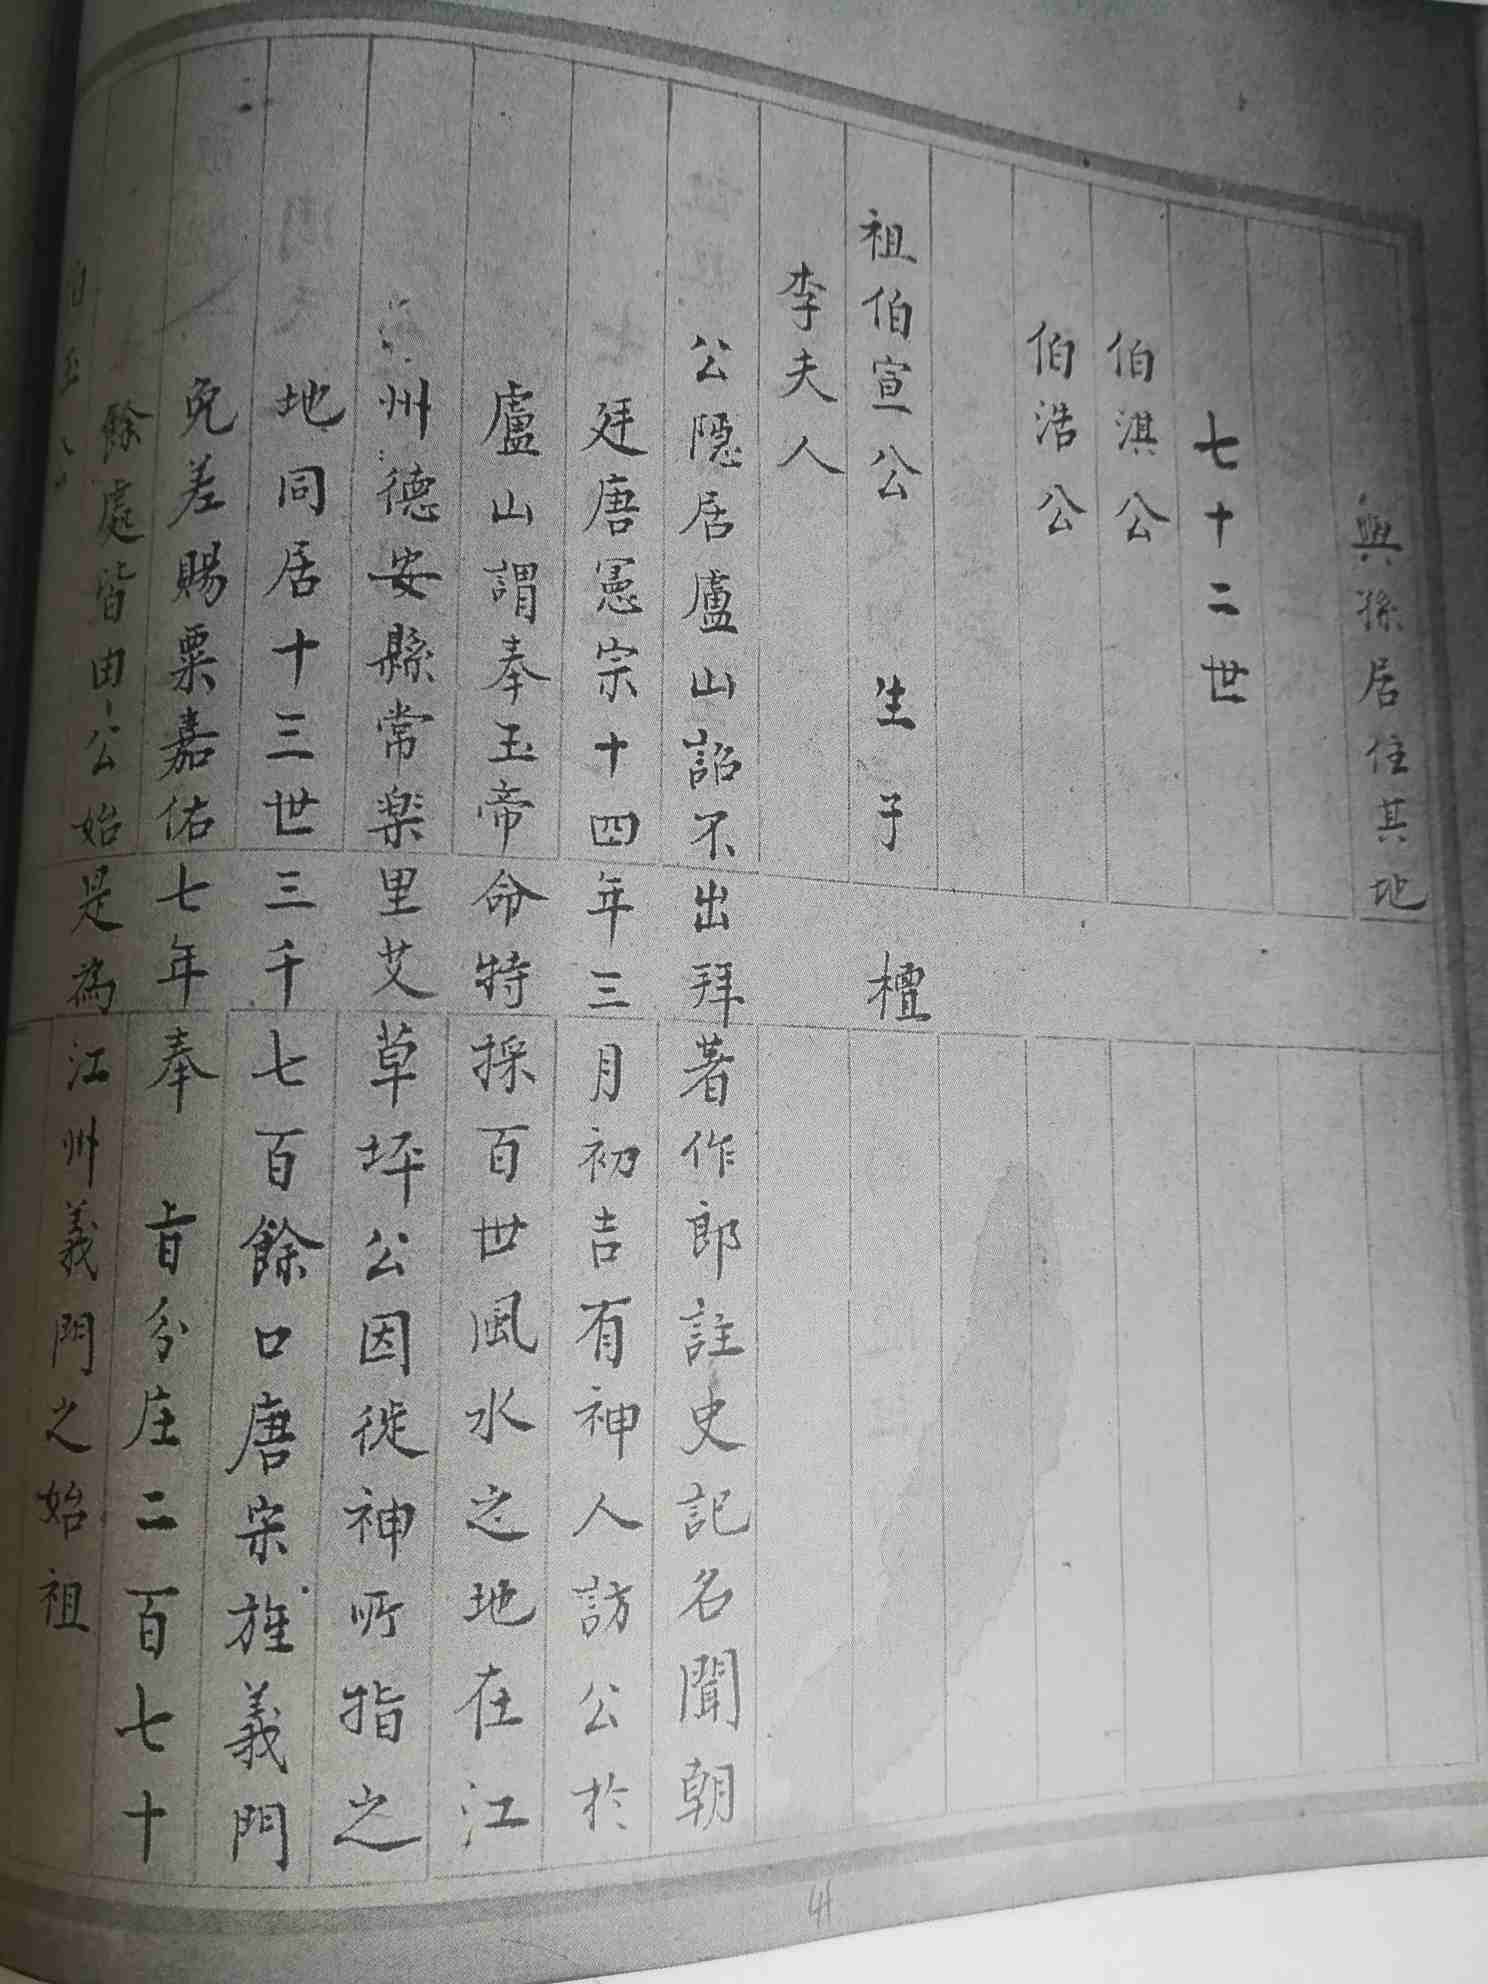 與孫居住其地
七十二世
伯淇公
伯浩公
祖伯宣公 生子 檀
李夫人
公隱居廬山詔不出拜著作郎註史記名聞朝
廷唐憲宗十四年三月初吉有神人訪公於
廬山謂奉玉帝命特採百世風水之地在江
州德安縣常楽里艾草坪公因徙神所指之
地同居十三世三千七百餘口唐宋旌義門
免差賜粟嘉佑七年奉 旨分庄二百七十
餘處皆由公始是為江州義門之始祖